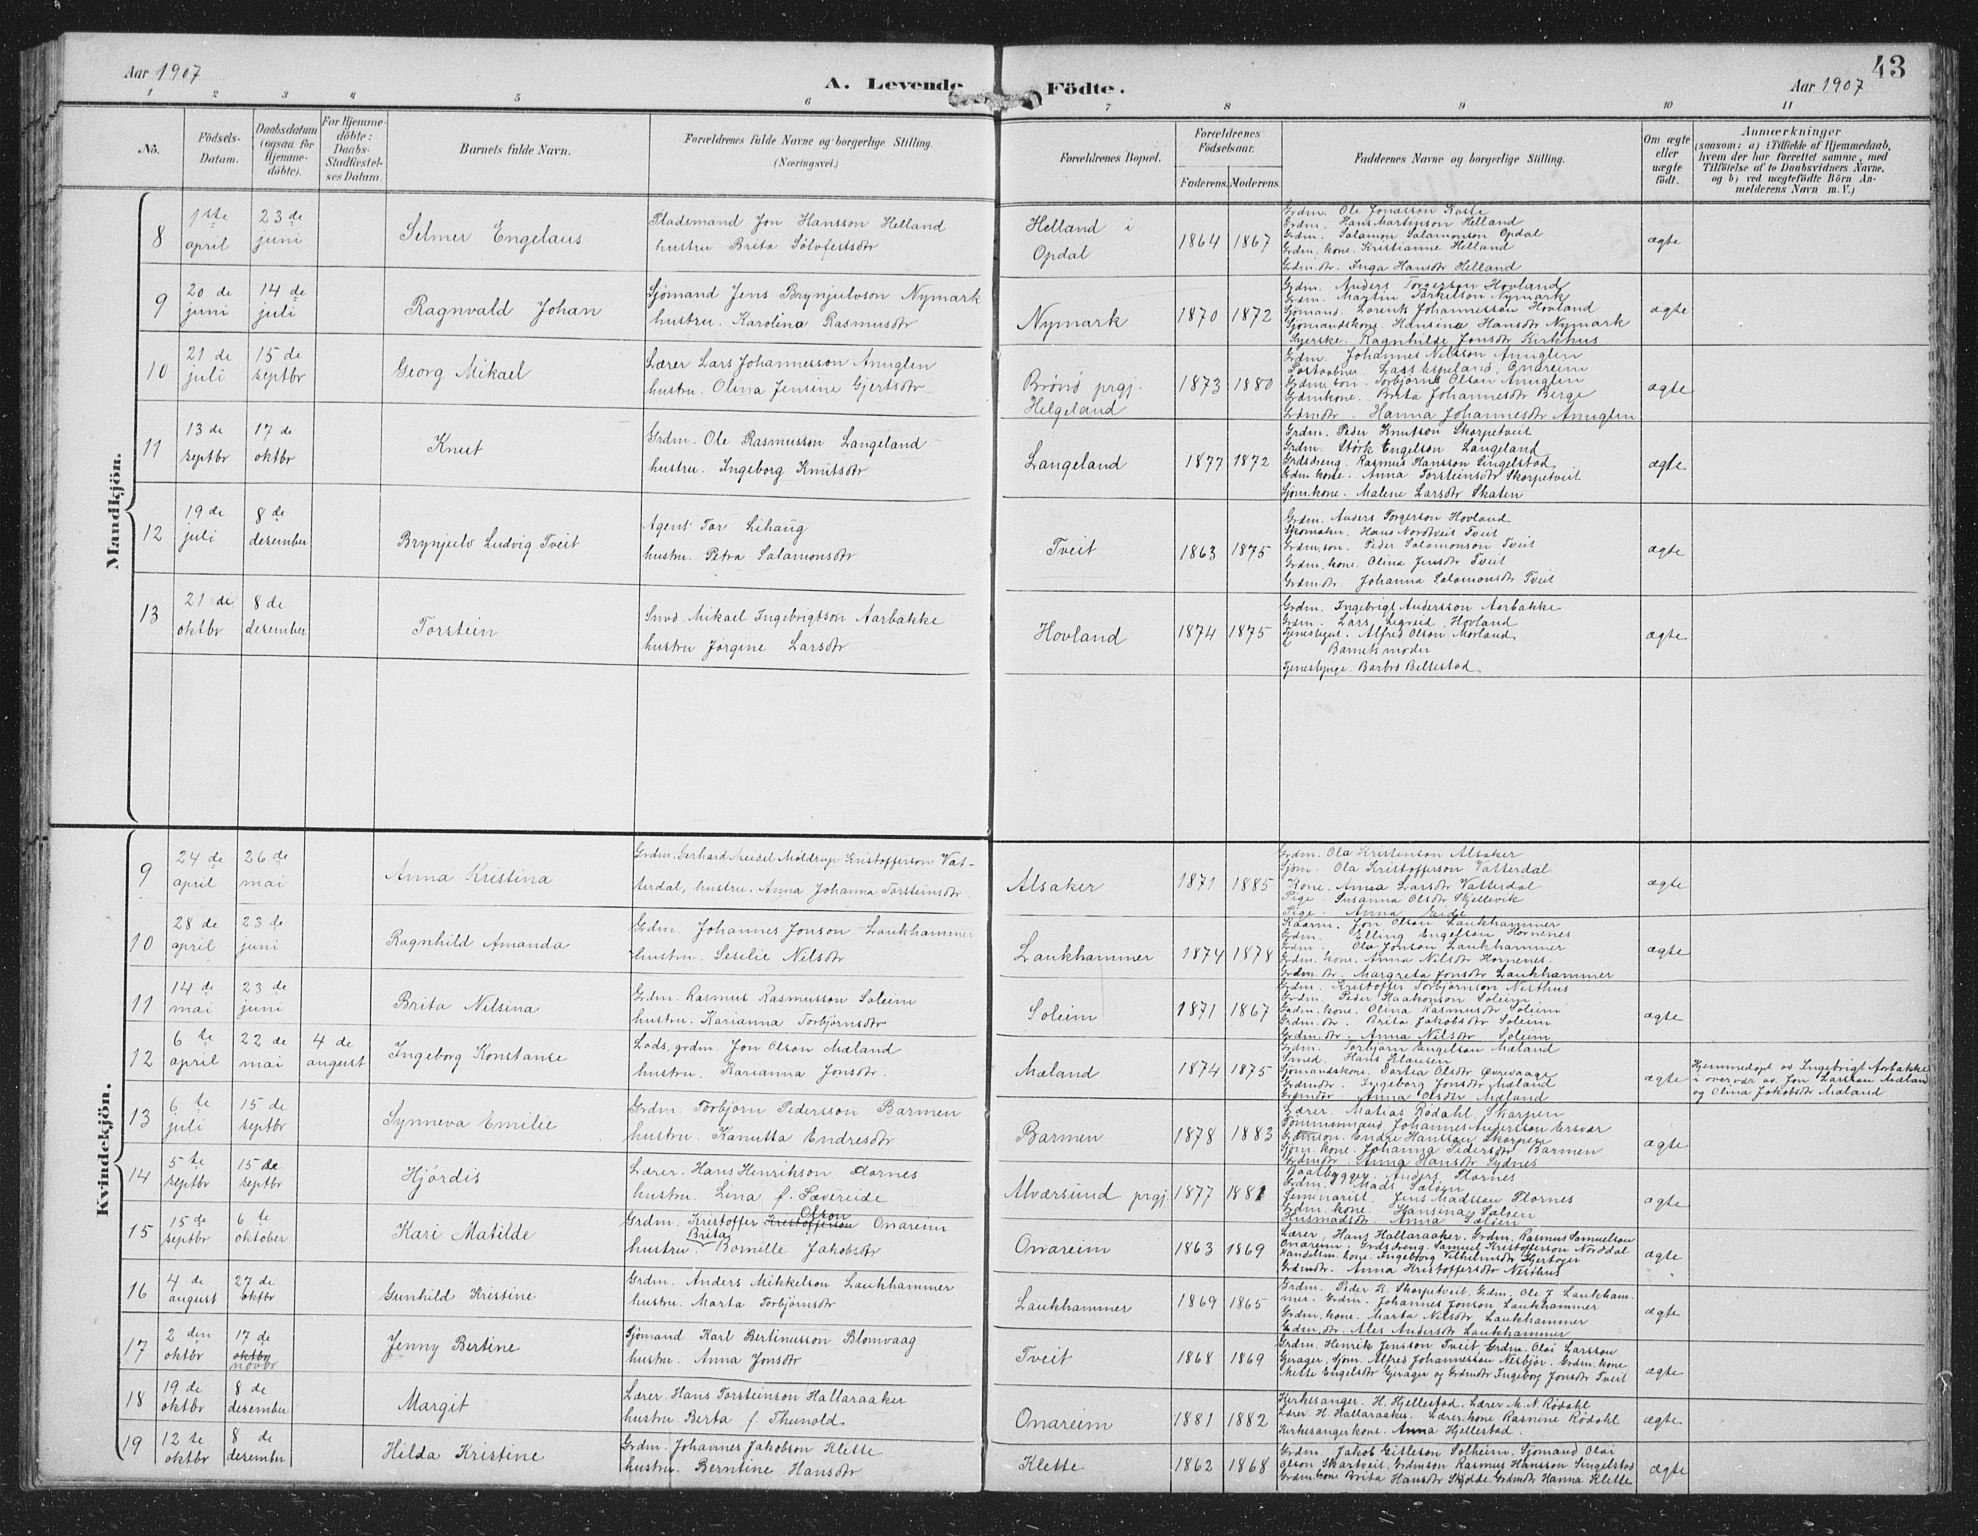 Aar 1907
A. Levende Födte.
Aar 1907
43
1 2 3 4 5 6 7 8 9 10 11
No.
Födsels-Datum.
Daabsdatum (ogsaa for Hjemmedöbte).
For Hjemmedöbte: Daabs-Stadfæstelses Datum.
Barnets fulde Navn.
Forældrenes fulde Navne og borgerlige Stilling. (Næringsvei.)
Forældrenes Bopæl.
Forældrenes Födselsaar.
Faderens. Moderens.
Faddernes Navne og borgerlige Stilling.
Om ægte eller uægte födt.
Anmærkninger
(saasom: a) i Tilfælde af Hjemmedaab, hvem der har forrettet samme, med Tilföielse af to Daabsvidners Navne. og b) ved uægtefödte Börn Anmelderens Navn m. V.)
Mandkjön.
8
1ste april
23 de juni
Selmer Engelaus
Pladsmand Jon Hansson Helland
hustru Brita Sölvfestsdtr
Helland i Opdal
1864 1867
Grdm. Ole Jonasson Koste
Grdm. Hans Martinson Helland
Grdm. Salamon Salamonson Opdal
Grdm. kone. Kristianne Helland
Grdm.dtr. Inga Hansdtr Helland
ægte
9
20 de juni
14 de juli
Ragnvald Johan
Sjömand Jens Brynjulvson Nymark
hustru. Karolina Rasmusdtr
Nymark
1870 1872
Grdm. Anders Torgerson Hovland
Grdm. Martin Torkelson Nymark
Sjömand. Lorents Johannesson Hovland
Sjömandskone. Hansina Hansdtr Nymark
Syerske. Ragnhilde Jonsdtr Kirkhus
ægte
10
21 de juli
15 de septbr
Georg Mikael
Lærer Lars Johannesson Anuglen
hustru. Olina Jensine Gjertsdtr
Brönö prgj. Helgeland
1873 1880
Grdm. Johannes Nilsson Anuglen
Postaabner. Lars Espeland, Onareim
Grdm. son. Torbjörn Olson Anuglen
Grdmkone. Brita Johannesdtr Berge
Grdmdtr. Hanna Johannesdtr Anuglen
ægte
11
13 de septbr
17 de oktbr
Knut
Grdm. Ole Rasmusson Langeland
hustru. Ingeborg Knutsdtr
Langeland
1877 1872
Grdm. Peder Knutson Skorpetveit
Grdm. Störk Engelson Langeland
Grdsdreng. Rasmus Hansson Singelstad
Grdm kone. Anna Torsteinsdtr Skorpetveit
Sjom.kone. Malene Larsdtr Skaten
ægte
12
19 de juli
8 de desember
Brynjulv Ludvig Tveit
Agent Tor Lihaug
hustru. Petra Salamonsdtr
Tveit
1863 1875
Grdm. Anders Torgerson Hovland
Skomaker. Hans Nordtveit Tveit
Grdm.son. Peder Salomonson Tveit
Grdm. kone. Olina Jensdtr Tveit
Grdmdtr. Johanna Salamonsdtr Tveit
ægte
13
21 de oktbr
8 de desember
Torstein
Smed. Mikael Ingebrigtson Aarbakke
hustru Jörgine Larsdtr
Hovland
1874 1875
Grdm. Ingebrigt Andersson Aarbakke
Grdm. Lars Legreid, Hovland
Tjenestegut. Alfred Olson Morland
Barnets moder
Tjenestepige. Barbro Bellestad
ægte
Kvindekjön.
9
24 de april
26 de mai
Anna Kristina
Grdm. Gerhard Meidel Möldrup Kristofferson Vat-
terdal, hustru. Anna Johanna Torsteinsdtr.
Alsaker
1871 1885
Grdm. Ola Kristenson Alsaker
Sjöm. Ola Kristofferson Vatterdal
Kone. Anna Larsdtr Vatterdal
Pige. Susanna Olsdtr Skjellevik
Pige. Anna Eide
ægte
10
28 de april
23 de juni
Ragnhild Amanda
Grdm. Johannes Jonson Laukhammer
hustru. Seselie Nilsdtr
Laukhammer
1874 1878
Kaarm. Jon Olson Laukhammer
Grdm. Elling Engelson Hornenes
Grdm. Ola Jonson Laukhammer
Grdm. kone. Anna Nilsdtr Hornenes.
Grdm. dtr. Margreta Jonsdtr Laukhammer
ægte
11
14 de mai
23 de juni
Brita Nilsina
Grdm. Rasmus Rasmusson Soleim
hustru. Karianna Torbjørnsdtr
Soleim
1871 1867
Grdm. Kristoffer Torbjörnson Nesthus
Grdm. Peder Haakonson Soleim
Grdm. kone. Olina Rasmusdtr Soleim
Grdm. dtr. Brita Jakobsdtr Soleim
Grdm.dtr. Anna Nilsdtr Soleim
ægte
12
6 te april
22 de mai
4 de august
Ingeborg Konstanse
Lods, grdm. Jon Olson Mæland
hustru. Karianna Jonsdtr.
Mæland
1874 1875
Grdm. Torbjörn Engelson Mæland
Smed. Hans Klausen
Sjömandskone. Partea Olsdtr Övrevaage
Grdmdtr. Ingeborg Jonsdtr Mæland
Grdmdtr Anna Olsdtr Mæland
ægte
Hjemmedöpt av Ingebrigt Aarbakke
i overvær av Jon Larsson Mæland
og Olina Jakobsdtr Mæland
13
6 te juli
15 de septbr
Synneva Emilie
Grdm. Torbjörn Pedersson Barmen
hustru. Kanutta Endresdtr
Barmen
1878 1883
Lærer. Matias Rödahl, Skorpen
Johannes Andersson Ersvær
Grdmson. Endre Hansson Skorpen
Sjöm. kone. Johanna Pedersdtr Barmen
Grdmdtr. Anna Hansdtr Sydnes
ægte
14
5 te septbr
15 de septbr
Hjördis
Lærer. Hans Henrikson Flornes
hustru. Lina f. Sævereide
Alværsund prgj
1877 1881
Baatbygger. Anders Flornes
Grdm. Mads Sælen
Seminarist. Jens Madsson Flornes
Grdm. kone. Hansina Sælen
Husmadsdtr Anna Sælen
ægte
15
15 de septbr
6 te oktober
Kari Matilde
Grdm. Kristoffer Kristofferson Olson Onareim
hustru. Brita Bomille Jakobsdtr
Onareim
1863 1869
Lærer. Hans Hallaraaker. Grdm. Rasmus Samuelson
Onareim. Grdsdreng. Samuel Kristofferson Norddal
Handelsm. kone. Ingeborg Vilhelmsdtr Hjertoger
Grdmdtr. Anna Kristoffersdtr Nesthus
ægte
16
4 de august
27 de oktbr
Gunhild Kristine
Grdm. Anders Mikkelson Laukhammer
hustru. Marta Torbjørnsdtr
Laukhammer
1869 1865
Grdm. Peder K. Skorpetveit. Grdm. Ole J. Laukham-
mer. Grdm. Johannes Jonson Laukhammer
Grdm. kone. Marta Nilsdtr Laukhammer
Grdm. dtr. Ales Andersdtr Laukhammer
ægte
17
2 den oktbr
17 de oktbr novbr
Jenny Bertine
Sjömand Karl Bertinusson Blomvaag
hustru. Anna Jonsdtr
Tveit
1868 1869
Grdm. Henrik Jensson Tveit, Grdm. Oloi Larsson
Gjerager. Sjöm. Alfred Johannesson Nesbjör. Grdm. kone
Mette Engelsdtr Gjerager og Grdmdtr Ingeborg Jonsdtr Tveit
ægte
18
19 de oktbr
8 de desember
Margit
Lærer. Hans Torsteinson Hallaraaker
hustru. Berta f. Thunold
Onareim
1881 1882
Kirkesanger. H. Hjellestad. Lærer M. N. Rödahl
Lærer. H. Hallaraaker. Lærer.kone Rasmine Rödahl
Kirkesangerkone. Anna Hjellestad.
ægte
19
12 te oktbr
8 de desember
Hilda Kristine
Grdm. Johannes Jakobson Klette
hustru. Berntine Hansdtr
Klette
1862 1868
Grdm. Jakob Gitleson Solheim. Sjömand Oloi
Olson Skartveit. Grdmson Rasmus Hansson Singelstad
Grdm. kone Brita Hansdtr Skjelde. Grdmdtr Hanna Klette
ægte